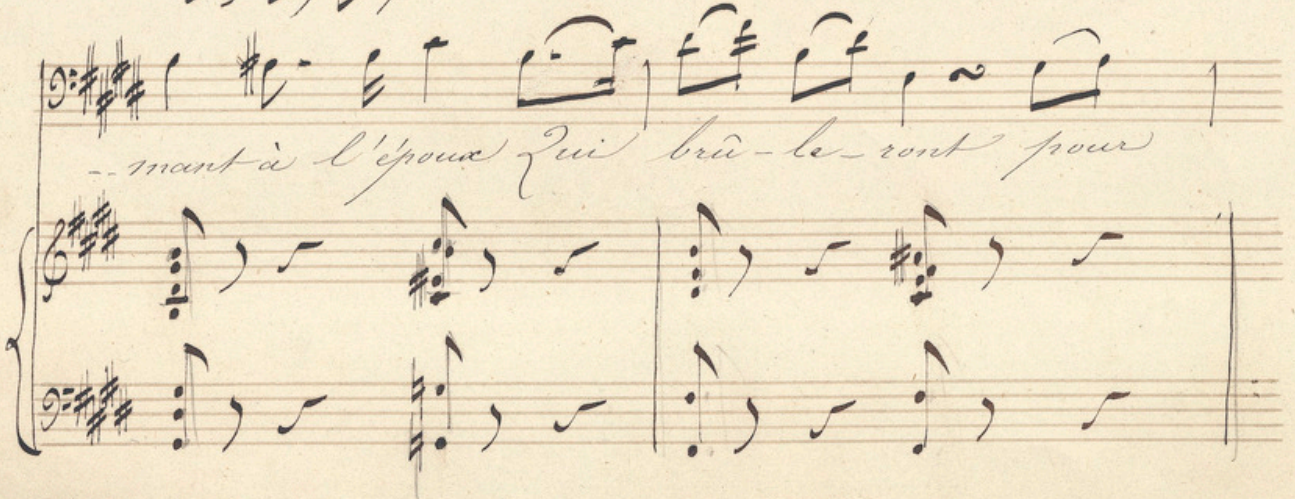 -- mant à l'époux Qui brû-le-ront pour